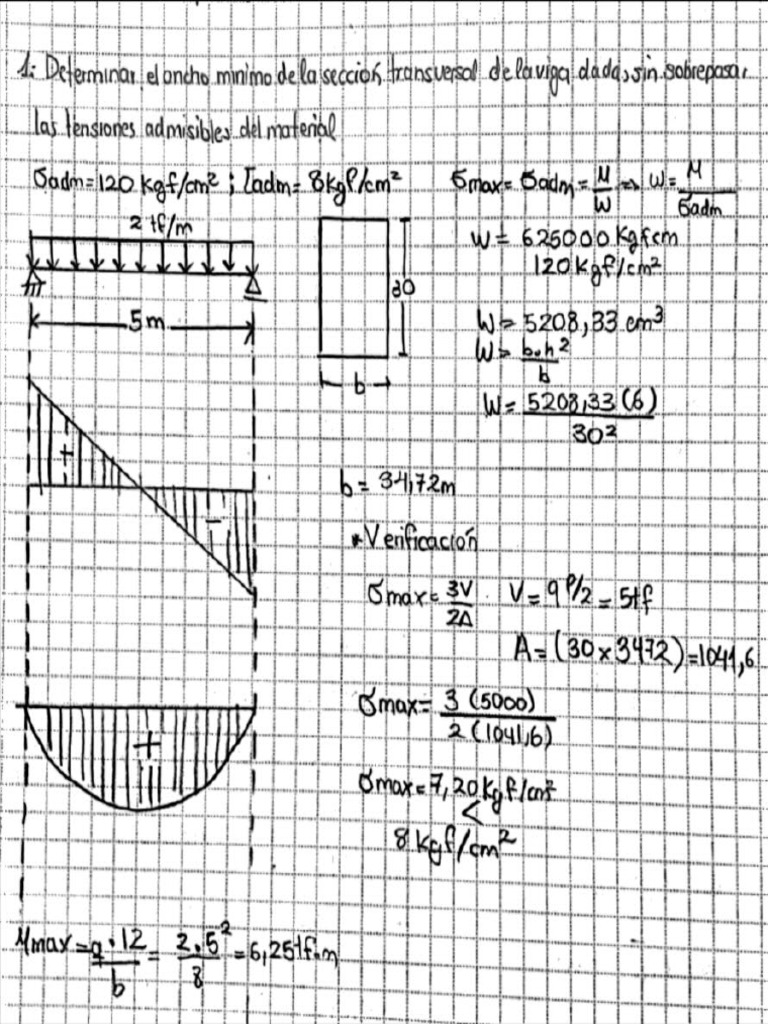 1: Determinar el ancho minimo de la sección transversal de la viga dada, sin sobrepasar
las tensiones admisibles del material
σadm = 120 kgf/cm² ; ζadm = 8kgf/cm²
σmax = σadm = M/W => W = M/σadm
2 tf/m
W = 625000 kgfcm / 120 kgf/cm²
30
5m
W = 5208,33 cm³
W = b.h²/b
b
W = 5208,33 (6) / 30²
+
b = 34,72m
-
*Verificación
σmax = 3V/2A V = qℓ/2 = 5tf
A = (30 x 3472) = 1041,6
σmax = 3 (5000) / 2 (1041,6)
+
σmax = 7,20 kgf/cm²
<
8 kgf/cm²
Mmax = q.12/b = 2.5²/8 = 6,25tf.m